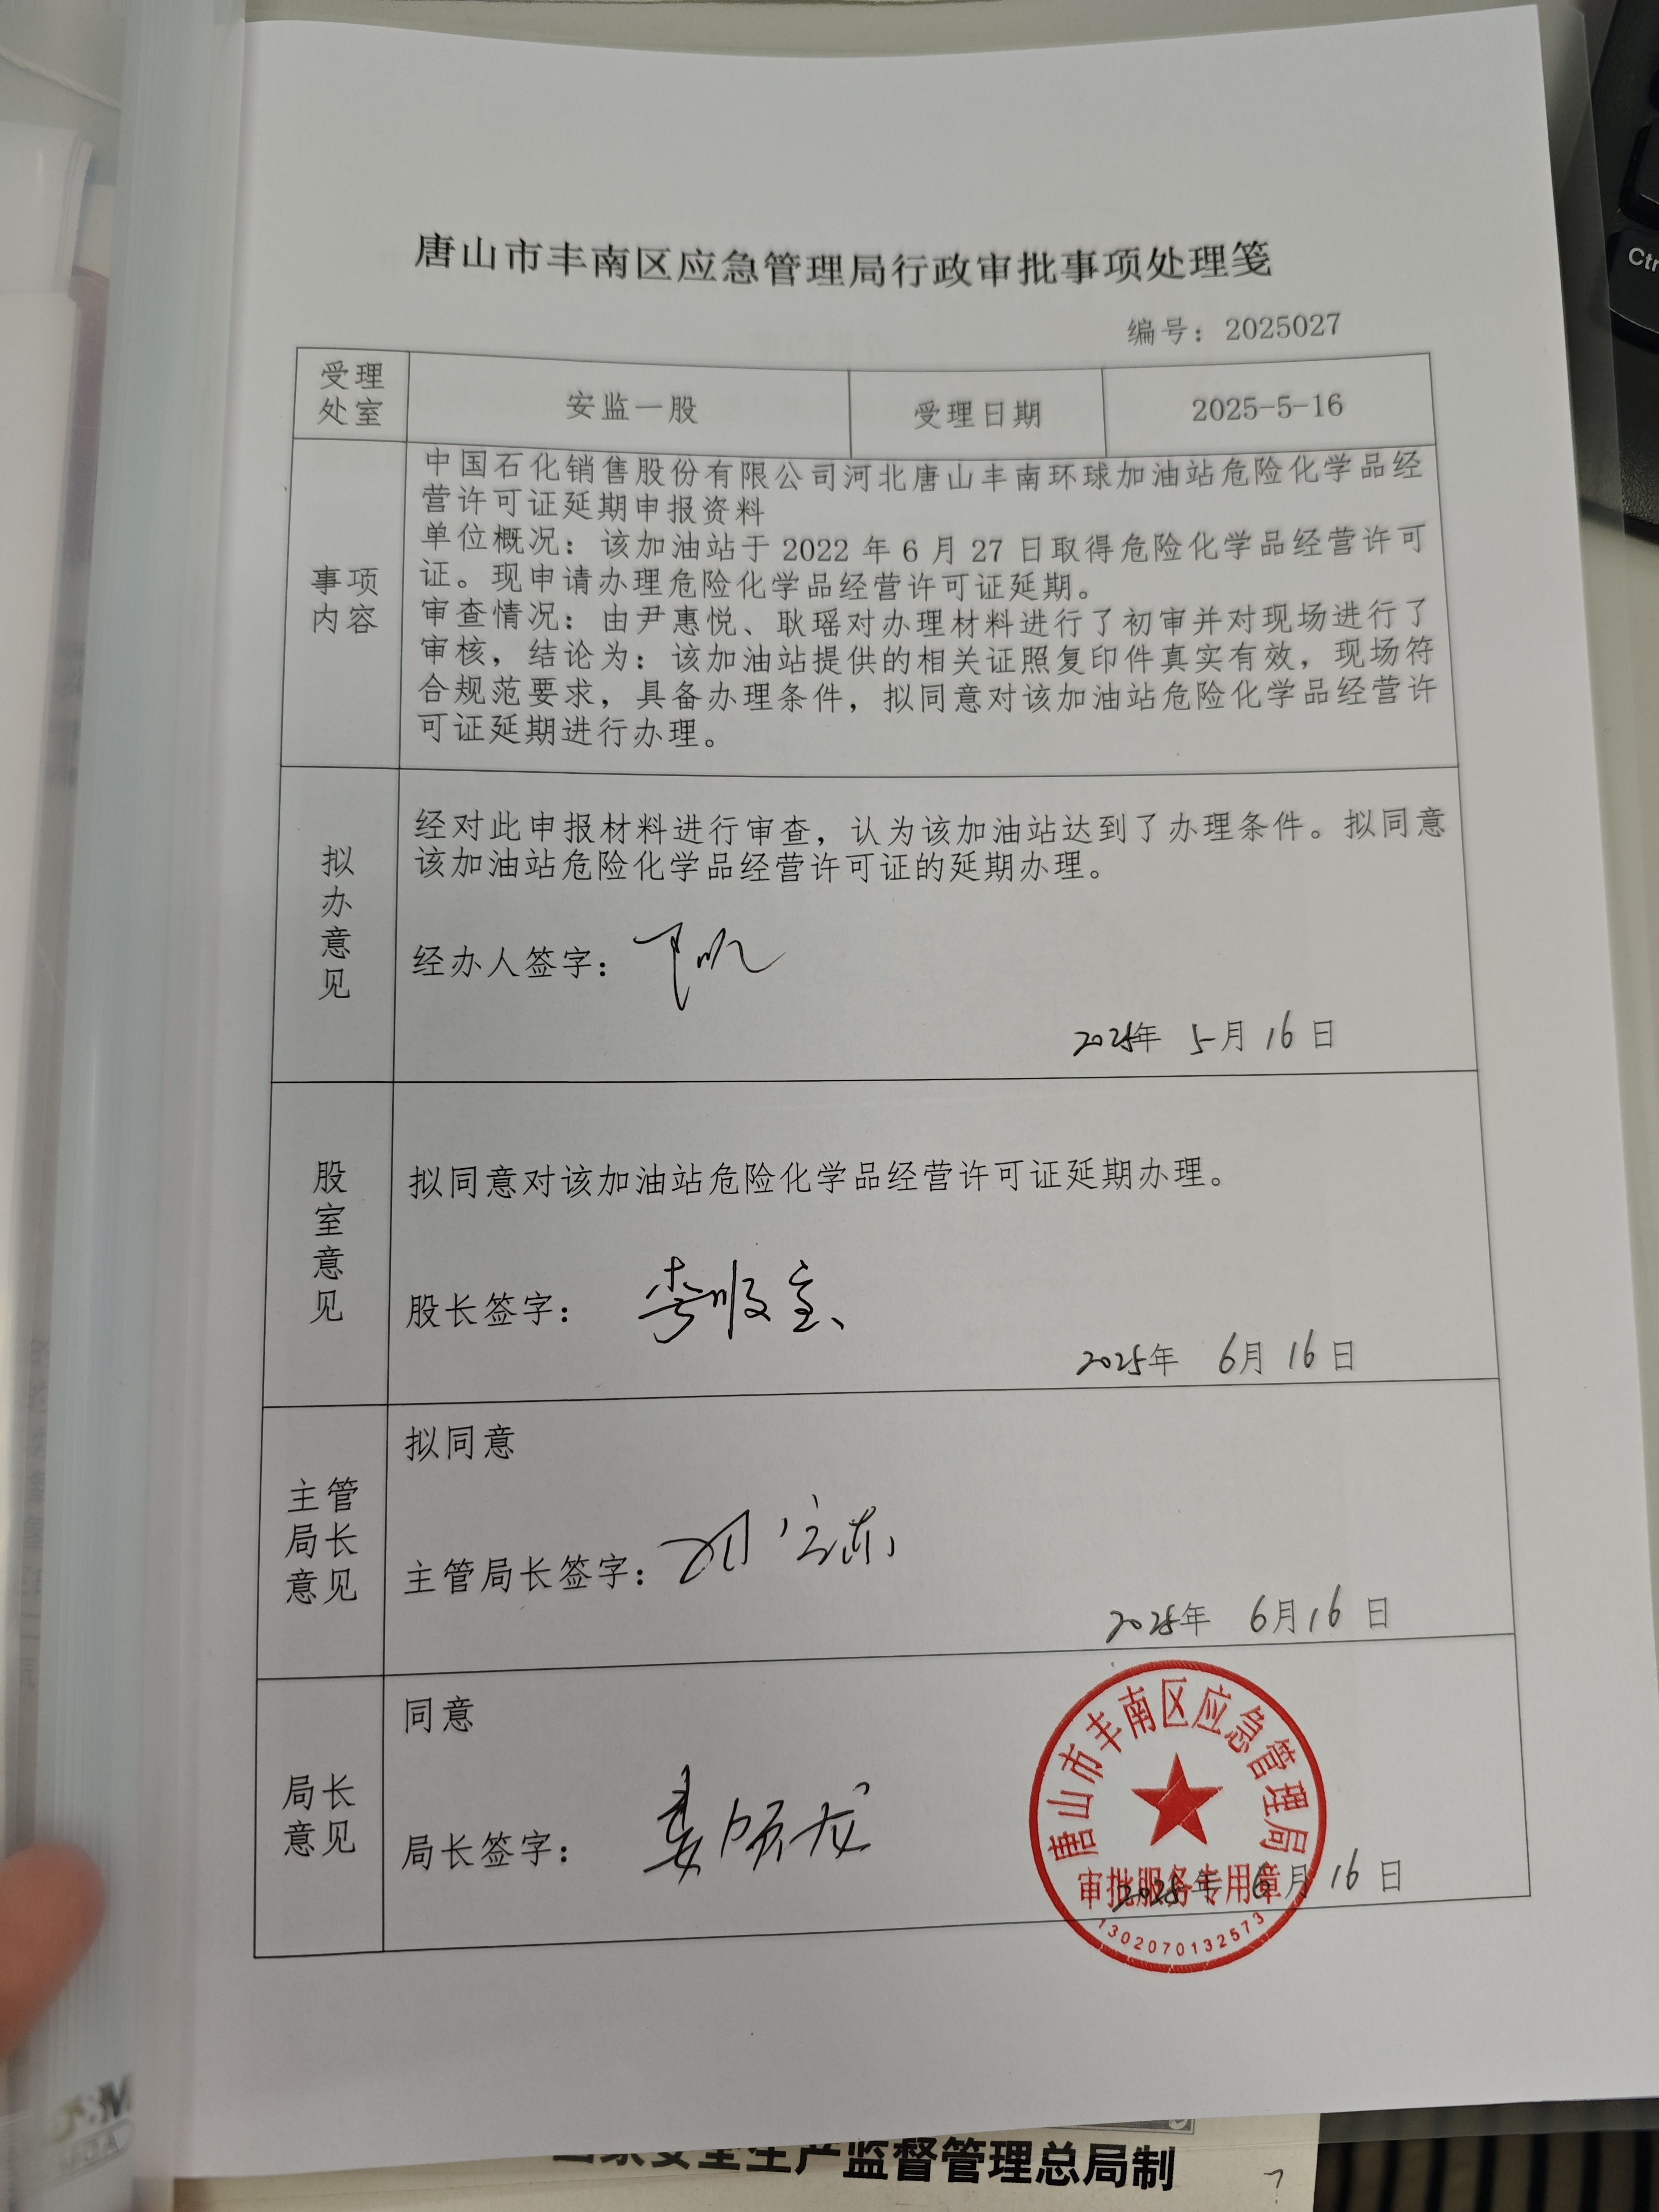 唐山市丰南区应急管理局行政审批事项处理笺
编号：2025027
受理
处室
安监一股
受理日期
2025-5-16
事项
内容
中国石化销售股份有限公司河北唐山丰南环球加油站危险化学品经
营许可证延期申报资料
单位概况：该加油站于 2022 年 6 月 27 日取得危险化学品经营许可
证。现申请办理危险化学品经营许可证延期。
审查情况：由尹惠悦、耿瑶对办理材料进行了初审并对现场进行了
审核，结论为：该加油站提供的相关证照复印件真实有效，现场符
合规范要求，具备办理条件，拟同意对该加油站危险化学品经营许
可证延期进行办理。
拟
办
意
见
经对此申报材料进行审查，认为该加油站达到了办理条件。拟同意
该加油站危险化学品经营许可证的延期办理。
经办人签字：
2025年 5月16日
股
室
意
见
拟同意对该加油站危险化学品经营许可证延期办理。
股长签字：
2025年 6月16日
主管
局长
意见
拟同意
主管局长签字：
2025年 6月16日
局长
意见
同意
局长签字：
2025年 6月16日
唐山市丰南区应急管理局
审批服务专用章
1302070132573
国家安全生产监督管理总局制
Ctr